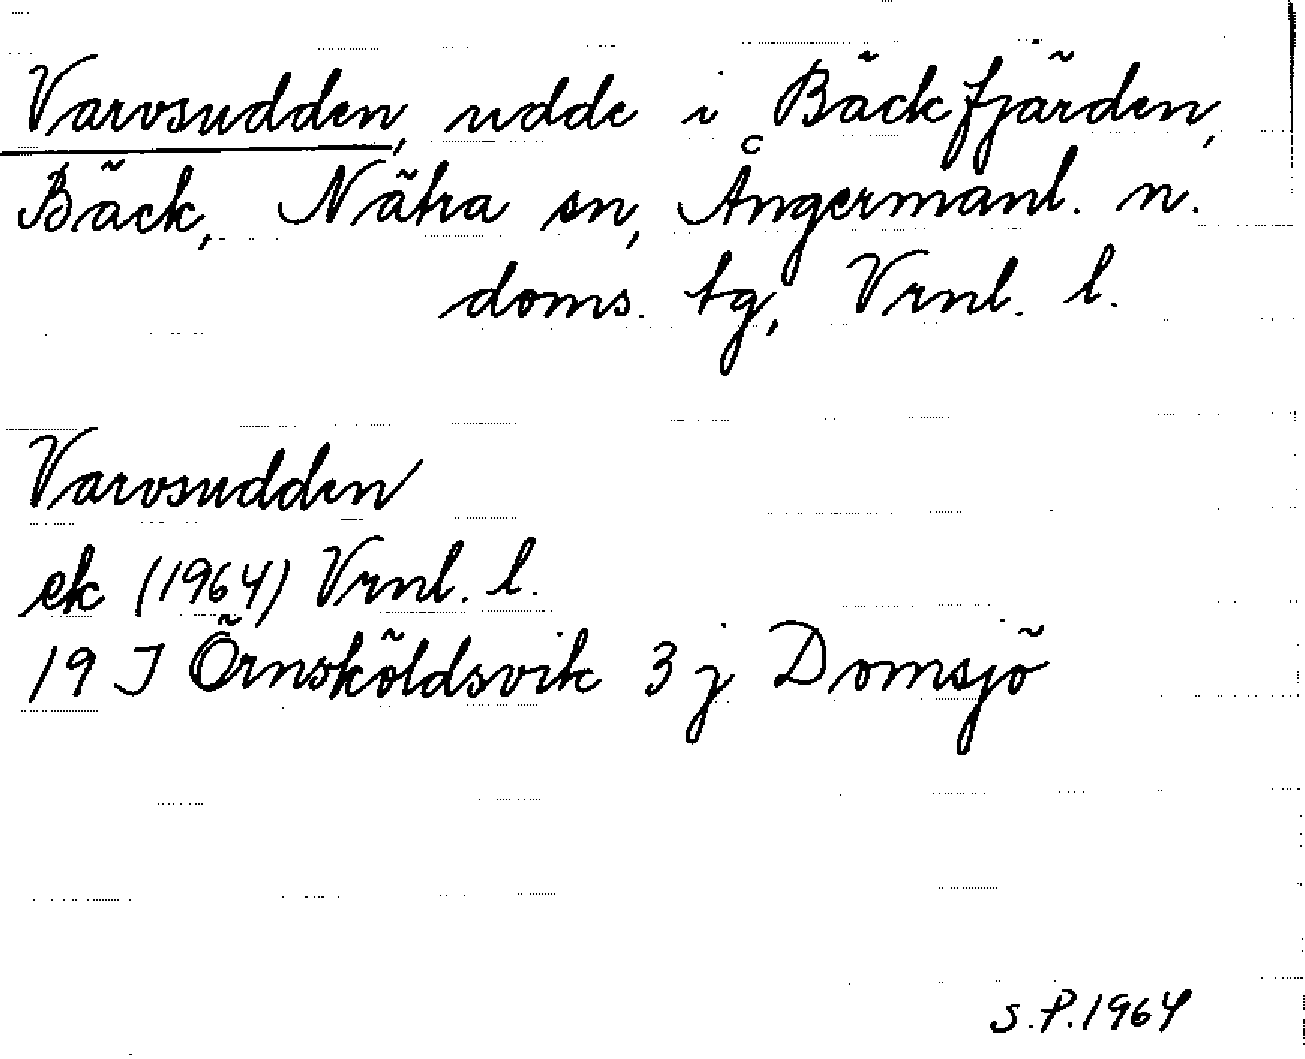 Varvsudden, udde i Bäckfjärden,
Bäck, Nätra sn, Ångermanl. n.
doms. tg, Vrnl. l.
Varvsudden
ek (1964) Vrnl. l.
19 J Örnsköldsvik 3 j Domsjö
S.P. 1964